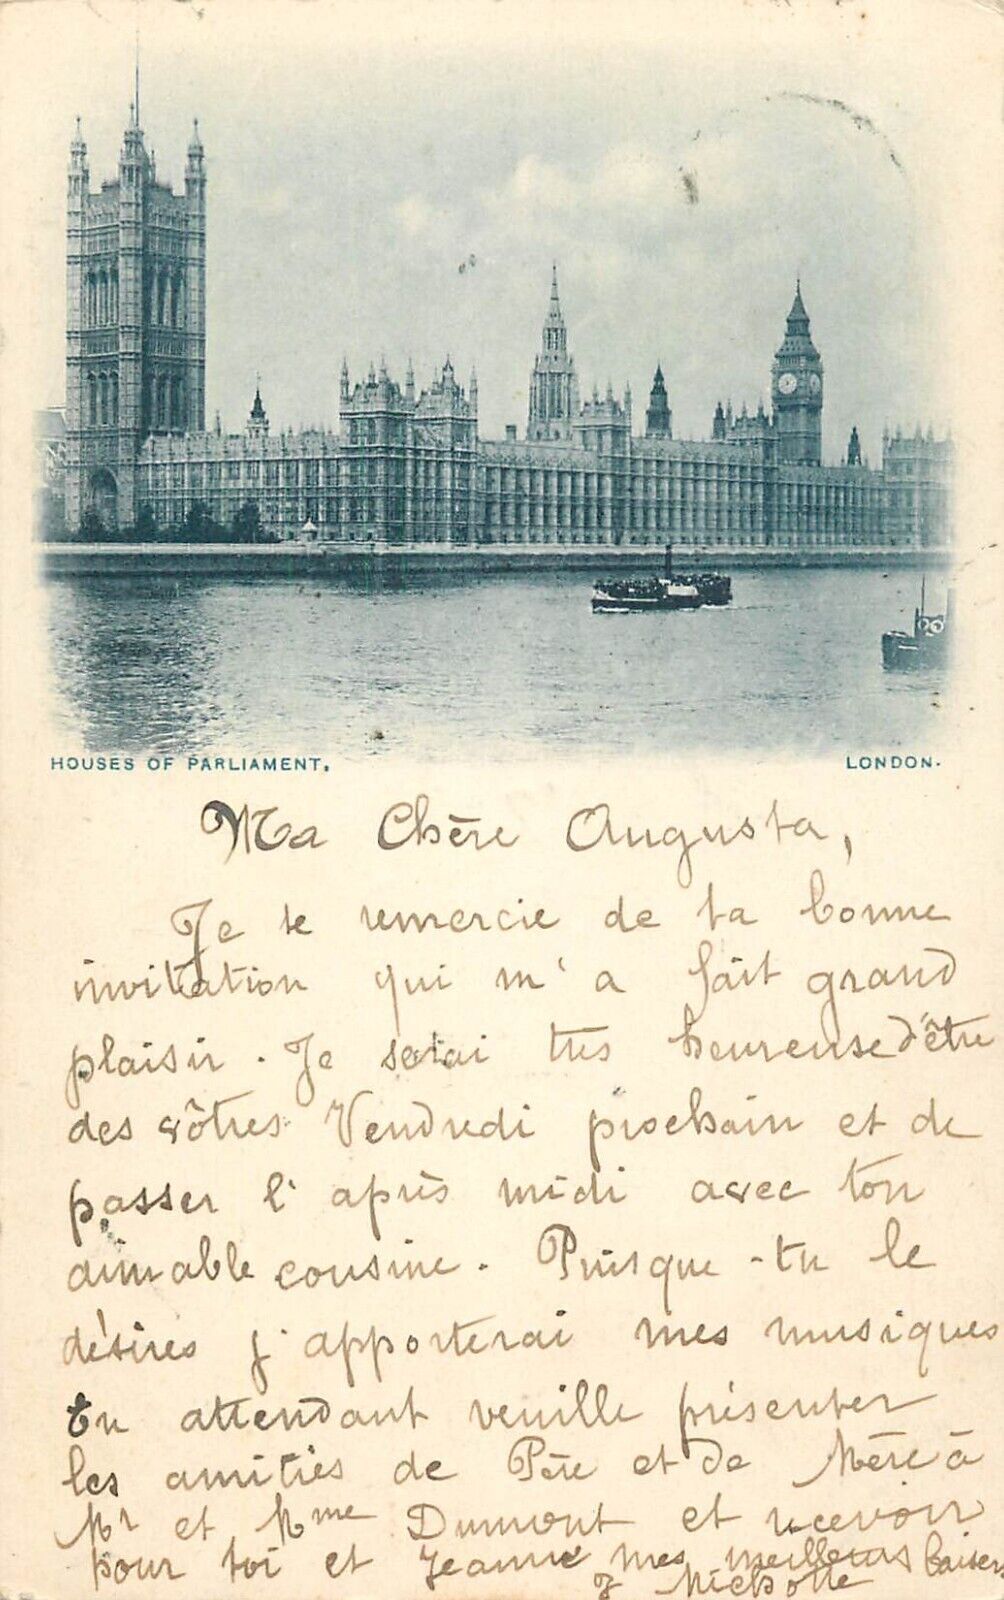 HOUSES OF PARLIAMENT,
LONDON.
Ma Chère Augusta,
Je te remercie de ta bonne
invitation qui m'a fait grand
plaisir. Je serai très heureuse d'être
des vôtres Vendredi prochain et de
passer l'après midi avec ton
aimable cousine. Puisque-tu le
désires j'apporterai mes musiques
En attendant veuille présenter
les amitiés de Père et de Mère à
Mr et Mme Dumont et recevoir
pour toi et Jeanne mes meilleurs baisers
J Michotte